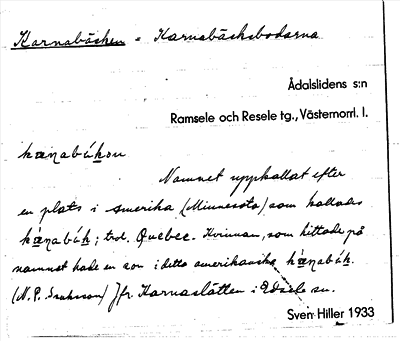 Karnabäcken = Karnabäcksbodarna
Ådalslidens s:n
Ramsele och Resele tg., Västernorrl. l.
kænabǽkən
Namnet uppkallat efter
en plats i Amerika (Minnesota) som kallades
kǽnabǽk; trol. Quebec. Kvinnan, som hittade på
namnet hade en son i detta amerikanska kǽnabǽk.
(N.P. Isaksson) Jfr Karnaslåtten i Edsele sn.
Sven Hiller 1933